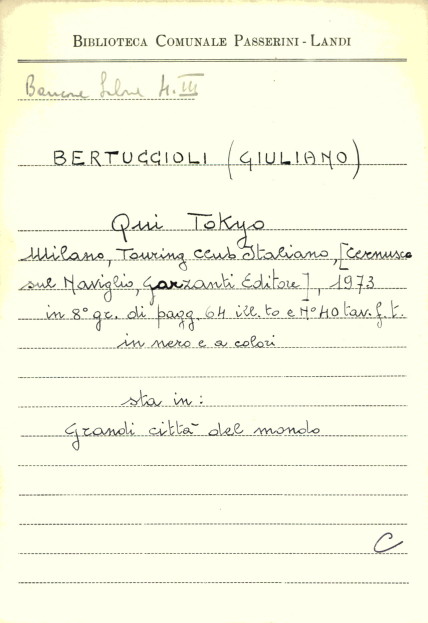 BIBLIOTECA COMUNALE PASSERINI - LANDI
Bancone Salone 4. III
BERTUCCIOLI (GIULIANO)
Qui Tokyo
Milano, Touring club Italiano, [Cernusco
sul Naviglio, Garzanti Editore], 1973
in 8° gr. di pagg. 64 ill.to e N° 40 tav. f. t.
in nero e a colori
sta in:
Grandi città del mondo
C